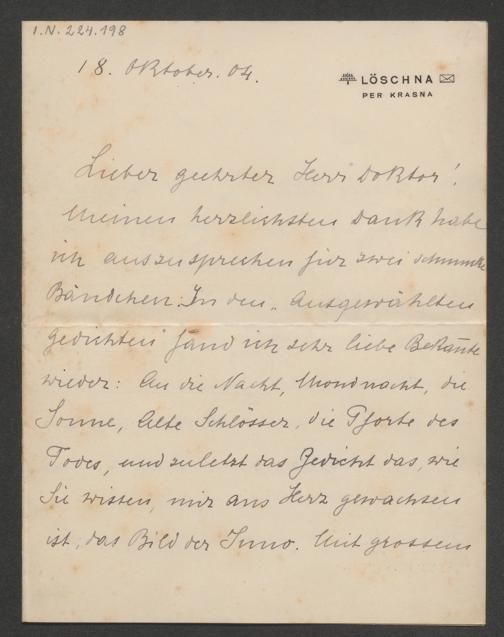 I.N. 224.198
18. Oktober. 04.
LÖSCHNA
PER KRASNA
Lieber geehrter Herr Doktor!
Meinen herzlichsten Dank habe
ich auszusprechen für zwei schmucke
Bändchen. In den "Ausgewählten
Gedichten" fand ich sehr liebe Bekan̄te
wieder: An die Nacht, Mondnacht, die
Sonne, Alte Schlösser, die Pforte des
Todes, und zuletzt das Gedicht das, wie
Sie wissen, mir ans Herz gewachsen
ist, das Bild der Juno. Mit grossem